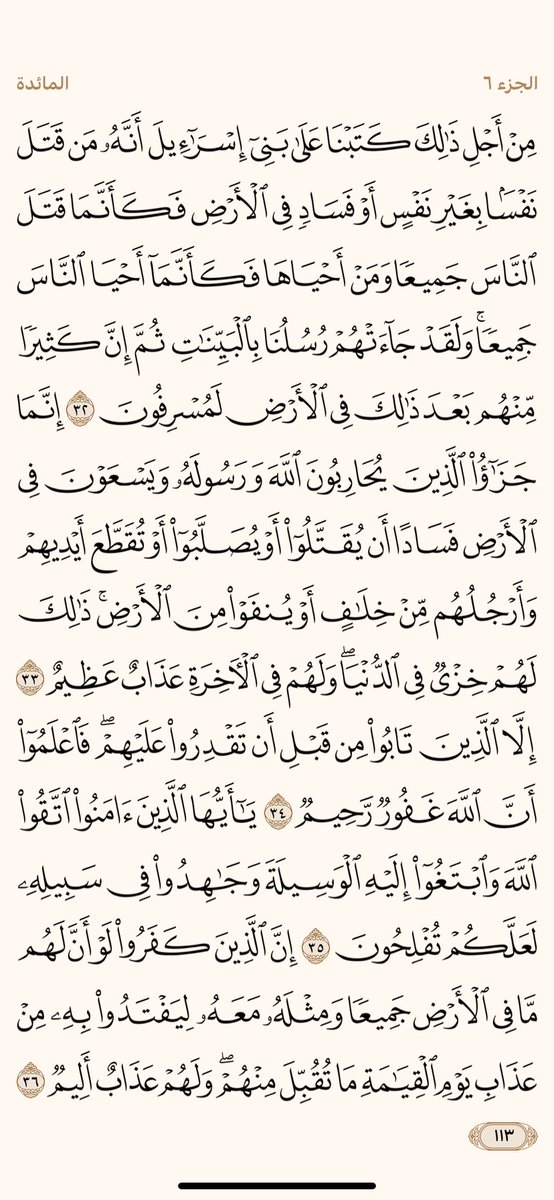 الجزء ٦
المائدة
مِنْ أَجْلِ ذَٰلِكَ كَتَبْنَا عَلَىٰ بَنِىٓ إِسْرَٰٓءِيلَ أَنَّهُۥ مَن قَتَلَ
نَفْسًۢا بِغَيْرِ نَفْسٍ أَوْ فَسَادٍ فِى ٱلْأَرْضِ فَكَأَنَّمَا قَتَلَ
ٱلنَّاسَ جَمِيعًا وَمَنْ أَحْيَاهَا فَكَأَنَّمَآ أَحْيَا ٱلنَّاسَ
جَمِيعًا ۚ وَلَقَدْ جَآءَتْهُمْ رُسُلُنَا بِٱلْبَيِّنَٰتِ ثُمَّ إِنَّ كَثِيرًا
مِّنْهُم بَعْدَ ذَٰلِكَ فِى ٱلْأَرْضِ لَمُسْرِفُونَ ٣٢ إِنَّمَا
جَزَٰٓؤُا۟ ٱلَّذِينَ يُحَارِبُونَ ٱللَّهَ وَرَسُولَهُۥ وَيَسْعَوْنَ فِى
ٱلْأَرْضِ فَسَادًا أَن يُقَتَّلُوٓا۟ أَوْ يُصَلَّبُوٓا۟ أَوْ تُقَطَّعَ أَيْدِيهِمْ
وَأَرْجُلُهُم مِّنْ خِلَٰفٍ أَوْ يُنفَوْا۟ مِنَ ٱلْأَرْضِ ۚ ذَٰلِكَ
لَهُمْ خِزْىٌ فِى ٱلدُّنْيَا ۖ وَلَهُمْ فِى ٱلْءَاخِرَةِ عَذَابٌ عَظِيمٌ ٣٣
إِلَّا ٱلَّذِينَ تَابُوا۟ مِن قَبْلِ أَن تَقْدِرُوا۟ عَلَيْهِمْ ۖ فَٱعْلَمُوٓا۟
أَنَّ ٱللَّهَ غَفُورٌ رَّحِيمٌ ٣٤ يَٰٓأَيُّهَا ٱلَّذِينَ ءَامَنُوا۟ ٱتَّقُوا۟
ٱللَّهَ وَٱبْتَغُوٓا۟ إِلَيْهِ ٱلْوَسِيلَةَ وَجَٰهِدُوا۟ فِى سَبِيلِهِۦ
لَعَلَّكُمْ تُفْلِحُونَ ٣٥ إِنَّ ٱلَّذِينَ كَفَرُوا۟ لَوْ أَنَّ لَهُم
مَّا فِى ٱلْأَرْضِ جَمِيعًا وَمِثْلَهُۥ مَعَهُۥ لِيَفْتَدُوا۟ بِهِۦ مِنْ
عَذَابِ يَوْمِ ٱلْقِيَٰمَةِ مَا تُقُبِّلَ مِنْهُمْ ۖ وَلَهُمْ عَذَابٌ أَلِيمٌ ٣٦
١١٣